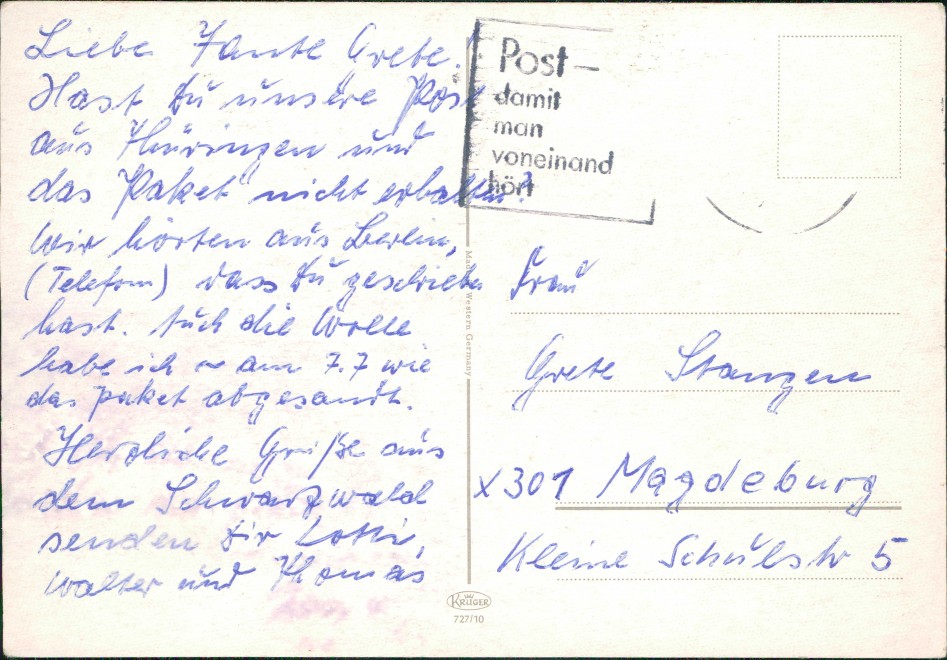 Liebe Tante Grete!
Hast Du unsere Post
aus Thüringen und
das Paket nicht erhalten?
Wir hörten aus Berlin,
(Telefon) dass Du geschrieben
hast. Auch die Wolle
habe ich am 7.7 wie
das Paket abgesandt.
Herzliche Grüße aus
dem Schwarzwald
senden Dir Lotti,
Walter und Thomas
Post–
damit
man
voneinand
hört
Made in Western Germany
Frau
Grete Stangen
X301 Magdeburg
Kleine Schulstr 5
KRÜGER
727/10